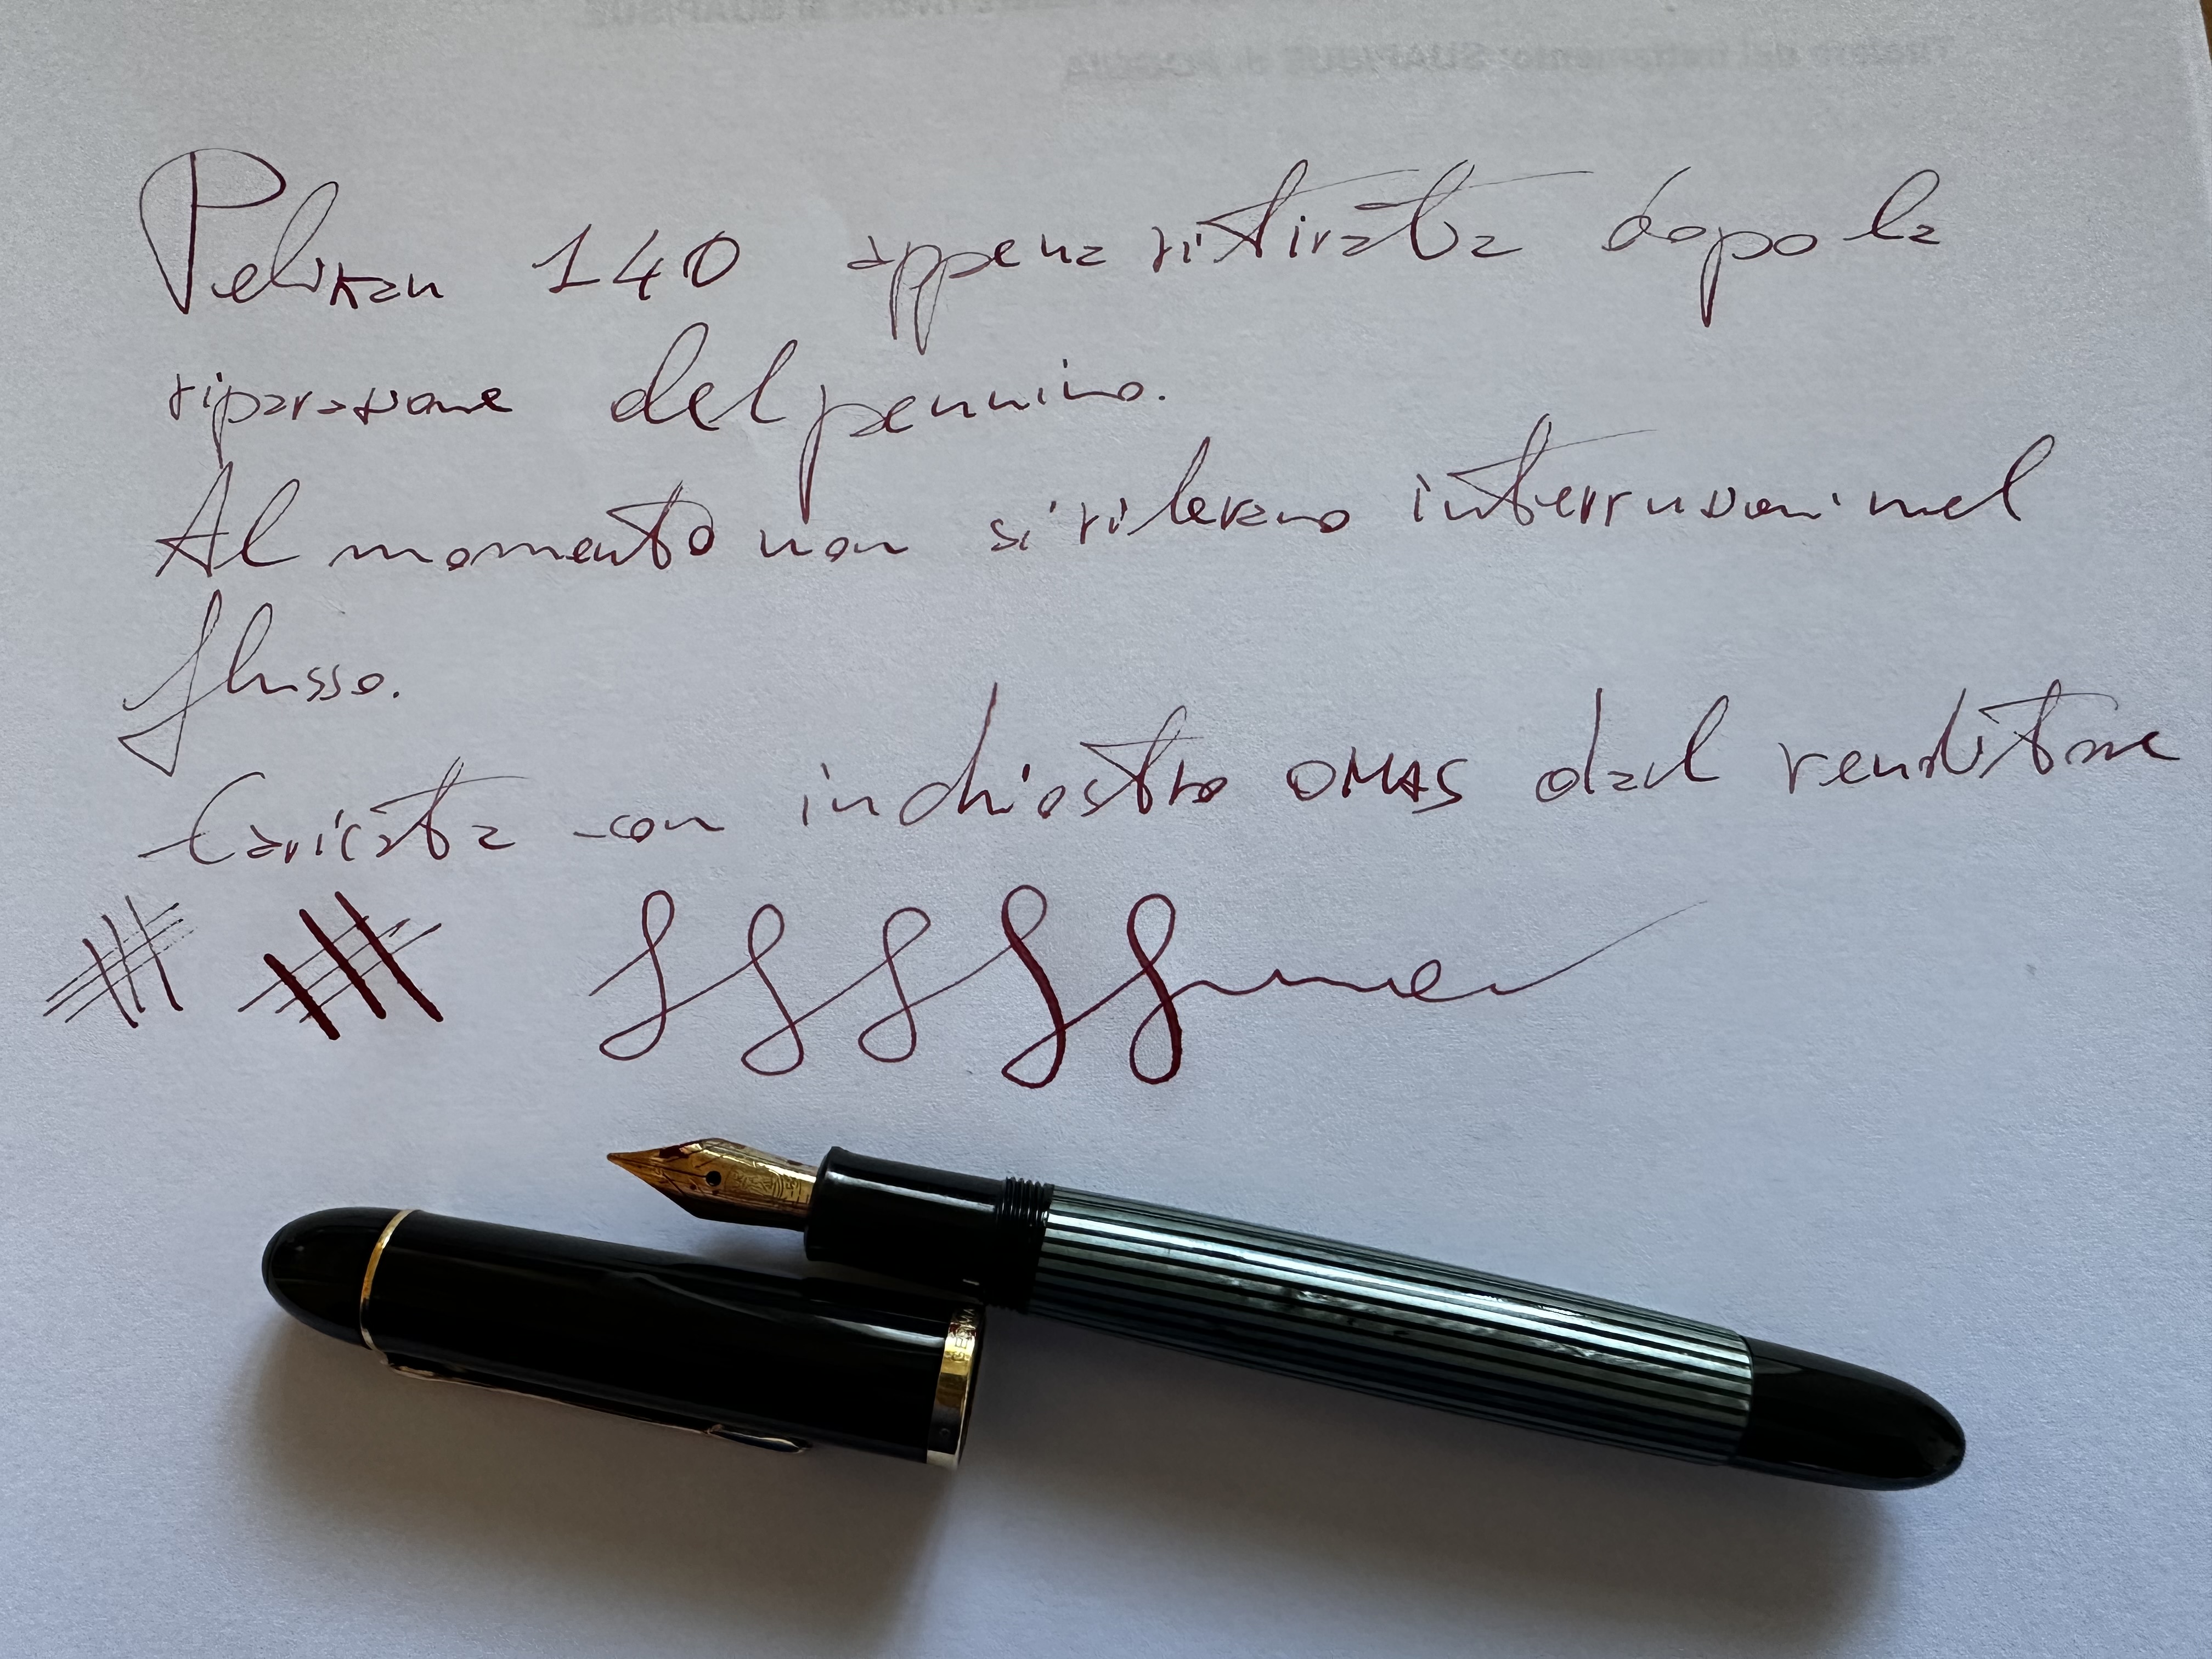 Pelikan 140 appena ritirata dopo la
riparazione del pennino.
Al momento non si rilevano interruzioni nel
flusso.
Caricata con inchiostro OMAS dal venditore